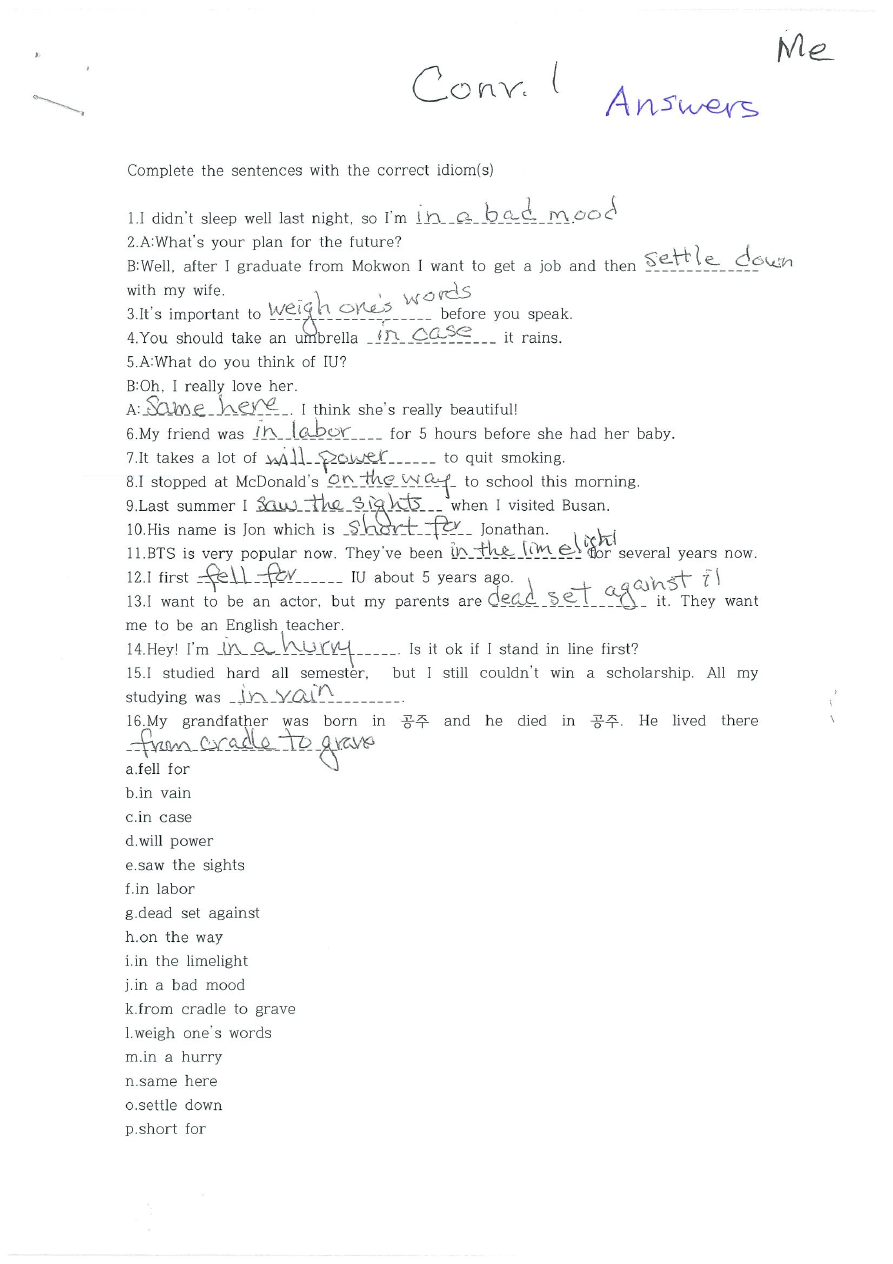 Me
Conv. 1
Answers
Complete the sentences with the correct idiom(s)
1.I didn't sleep well last night, so I'm in a bad mood
2.A:What's your plan for the future?
B:Well, after I graduate from Mokwon I want to get a job and then settle down
with my wife.
3.It's important to weigh one's words before you speak.
4.You should take an umbrella in case it rains.
5.A:What do you think of IU?
B:Oh, I really love her.
A: Same here. I think she's really beautiful!
6.My friend was in labor for 5 hours before she had her baby.
7.It takes a lot of will power to quit smoking.
8.I stopped at McDonald's on the way to school this morning.
9.Last summer I saw the sights when I visited Busan.
10.His name is Jon which is short for Jonathan.
11.BTS is very popular now. They've been in the limelight for several years now.
12.I first fell for IU about 5 years ago.
13.I want to be an actor, but my parents are dead set against it it. They want
me to be an English teacher.
14.Hey! I'm in a hurry. Is it ok if I stand in line first?
15.I studied hard all semester, but I still couldn't win a scholarship. All my
studying was in vain.
16.My grandfather was born in 공주 and he died in 공주. He lived there
from cradle to grave
a.fell for
b.in vain
c.in case
d.will power
e.saw the sights
f.in labor
g.dead set against
h.on the way
i.in the limelight
j.in a bad mood
k.from cradle to grave
l.weigh one's words
m.in a hurry
n.same here
o.settle down
p.short for